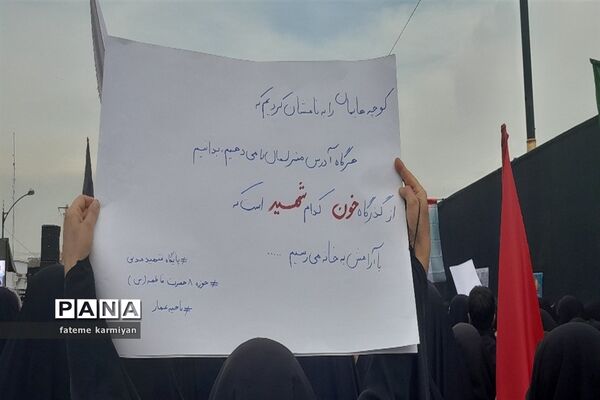 کوچه هایمان را به نامتان کردیم که
هرگاه آدرس منزلمان را می دهیم، بدانیم
از گذرگاه خون کدام شهید است که
با آرامش به خانه می رسیم .....
#پایگاه شهید مدنی
#حوزه ۸ حضرت فاطمه (س)
#ناحیه عمار
PANA
fateme karmiyan